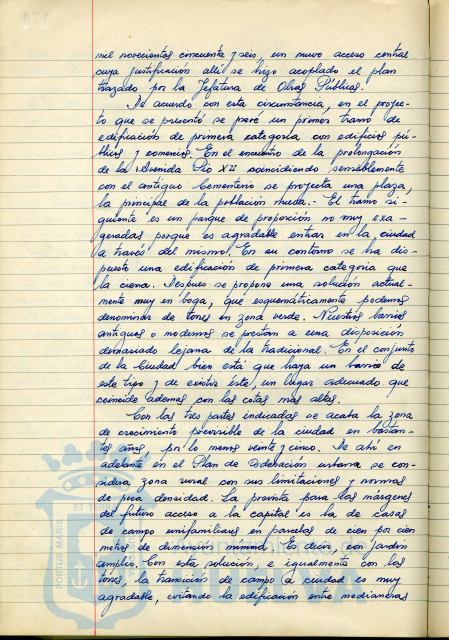 mil novecientos cincuenta y seis, un nuevo acceso central
cuya justificación allí se hizo acoplado el plan
trazado por la Jefatura de Obras Públicas.
De acuerdo con esta circunstancia, en el proyec-
to que se presentó se prevé un primer tramo de
edificación de primera categoría con edificios pú-
blicos y comercios. En el encuentro de la prolongación
de la Avenida Pio XII coincidiendo sensiblemente
con el antiguo Cementerio se proyecta una plaza,
la principal de la población nueva.- El tramo si-
guiente es un parque de proporción no muy exa-
geradas porque es agradable entrar en la ciudad
a través del mismo. En su contorno se ha dis-
puesto una edificación de primera categoría que
la cierra. Despues se propone una solución actual-
mente muy en boga, que esquemáticamente podemos
denominar de torres en zona verde. Nuestros barrios
antiguos o modernos se prestan a una disposición
demasiado lejana de la tradicional. En el conjunto
de la Ciudad bien está que haya un barrio de
este tipo y de existir éste, un lugar adecuado que
coincide ademas con las cotas más altas.
Con las tres partes indicadas se acaba la zona
de crecimiento previsible de la ciudad en bastan-
tes años, por lo menos veinte y cinco. De ahí en
adelante en el Plan de Ordenación urbana se con-
sidera zona rural con sus limitaciones y normas
de poca densidad. La prevista para las márgenes
del futuro acceso a la capital es la de casas
de campo unifamiliares en parcelas de cien por cien
metros de dimensión mínima. Es decir, con jardín
amplio. Con esta solución, e igualmente con las
torres, la transición de campo a ciudad es muy
agradable, evitando la edificación entre medianeras
PORTUS MARIS